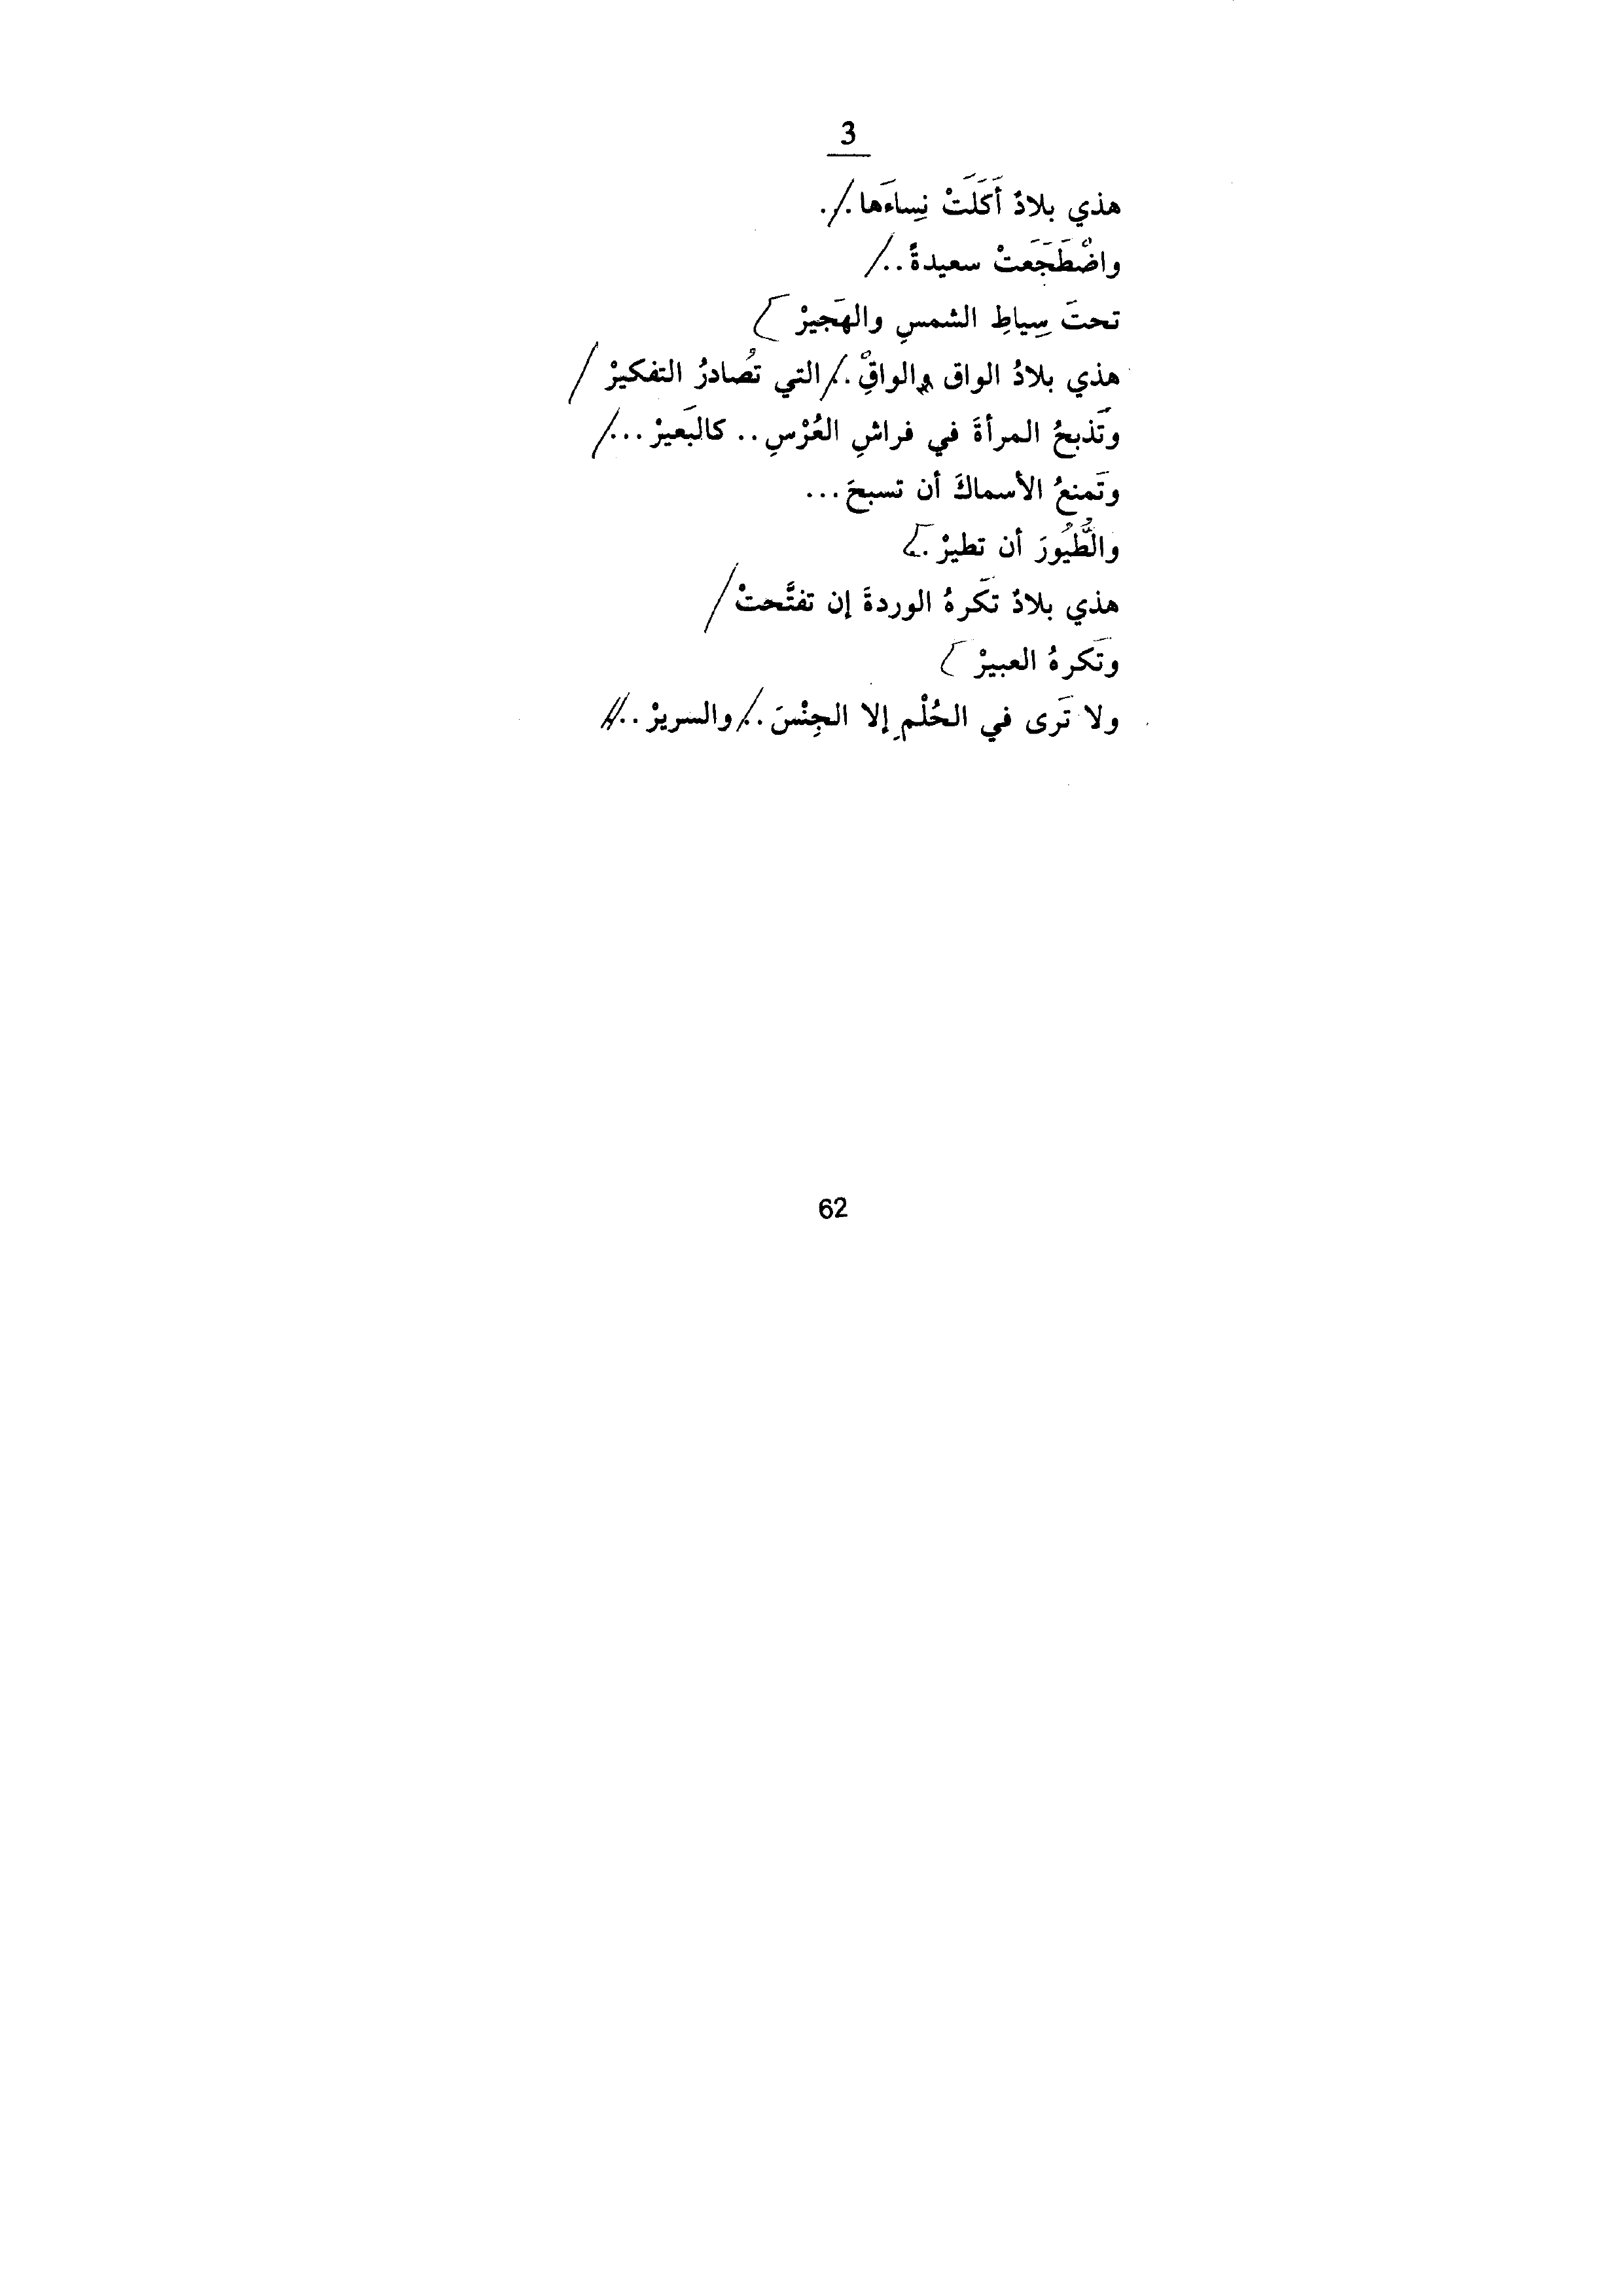 3
هذي بلادٌ أَكَلَتْ نِساءَها...
واضْطَجَعتْ سعيدةً..
تحتَ سِياطِ الشمسِ والهَجيرْ
هذي بلادُ الواق والواقِ.. التي تُصادرُ التفكيرْ
وتَذبحُ المرأةَ في فراشِ العُرْسِ.. كالبَعيرْ...
وتَمنعُ الأسماكَ أن تسبحَ...
والطُّيُورَ أن تطيرْ..
هذي بلادٌ تكَرهُ الوردةَ إن تفتَّحتْ
وتَكرهُ العبيرْ
ولا تَرى في الحُلْمِ إلا الجِنْسَ.. والسريرْ..
62